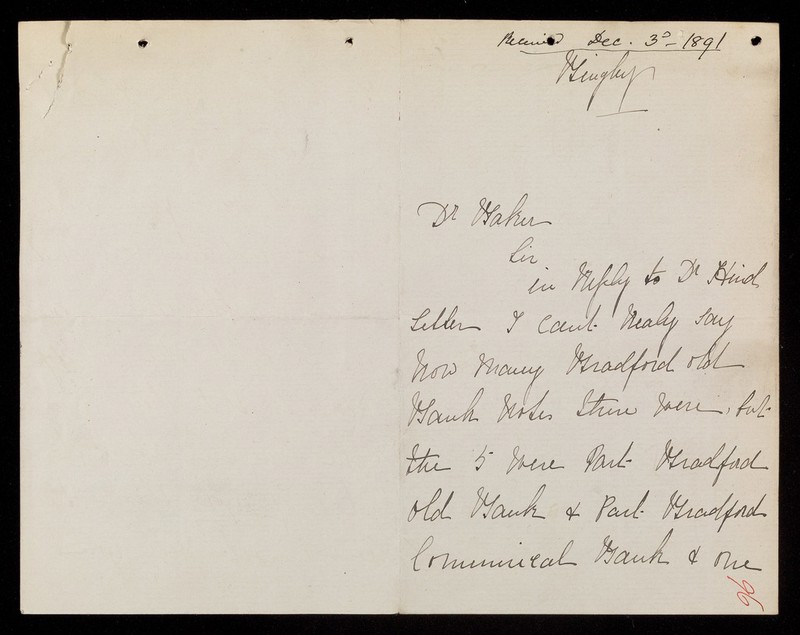 Received Dec. 3d - 1891
Bingley
Dr Baker
Sir
in Reply to Dr Hind
Letter I cant Realy say
how many Bradford old
Bank Notes there were, but
the 5 were Part Bradford
old Bank & Part Bradford
Commirical Bank & one
96